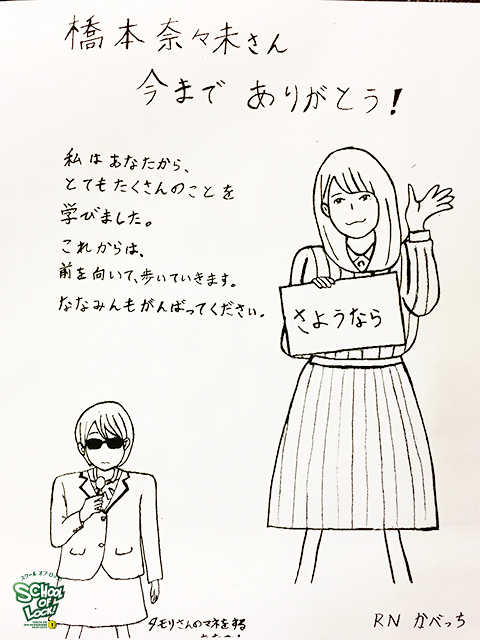 橋本奈々未さん
今まで ありがとう!
私はあなたから、
とてもたくさんのことを
学びました。
これからは、
前を向いて、歩いていきます。
ななみんもがんばってください。
さようなら
タモリさんのマネをする
スクール オブ ロック
SCHOOL
OF
LOCK!
RN かべっち